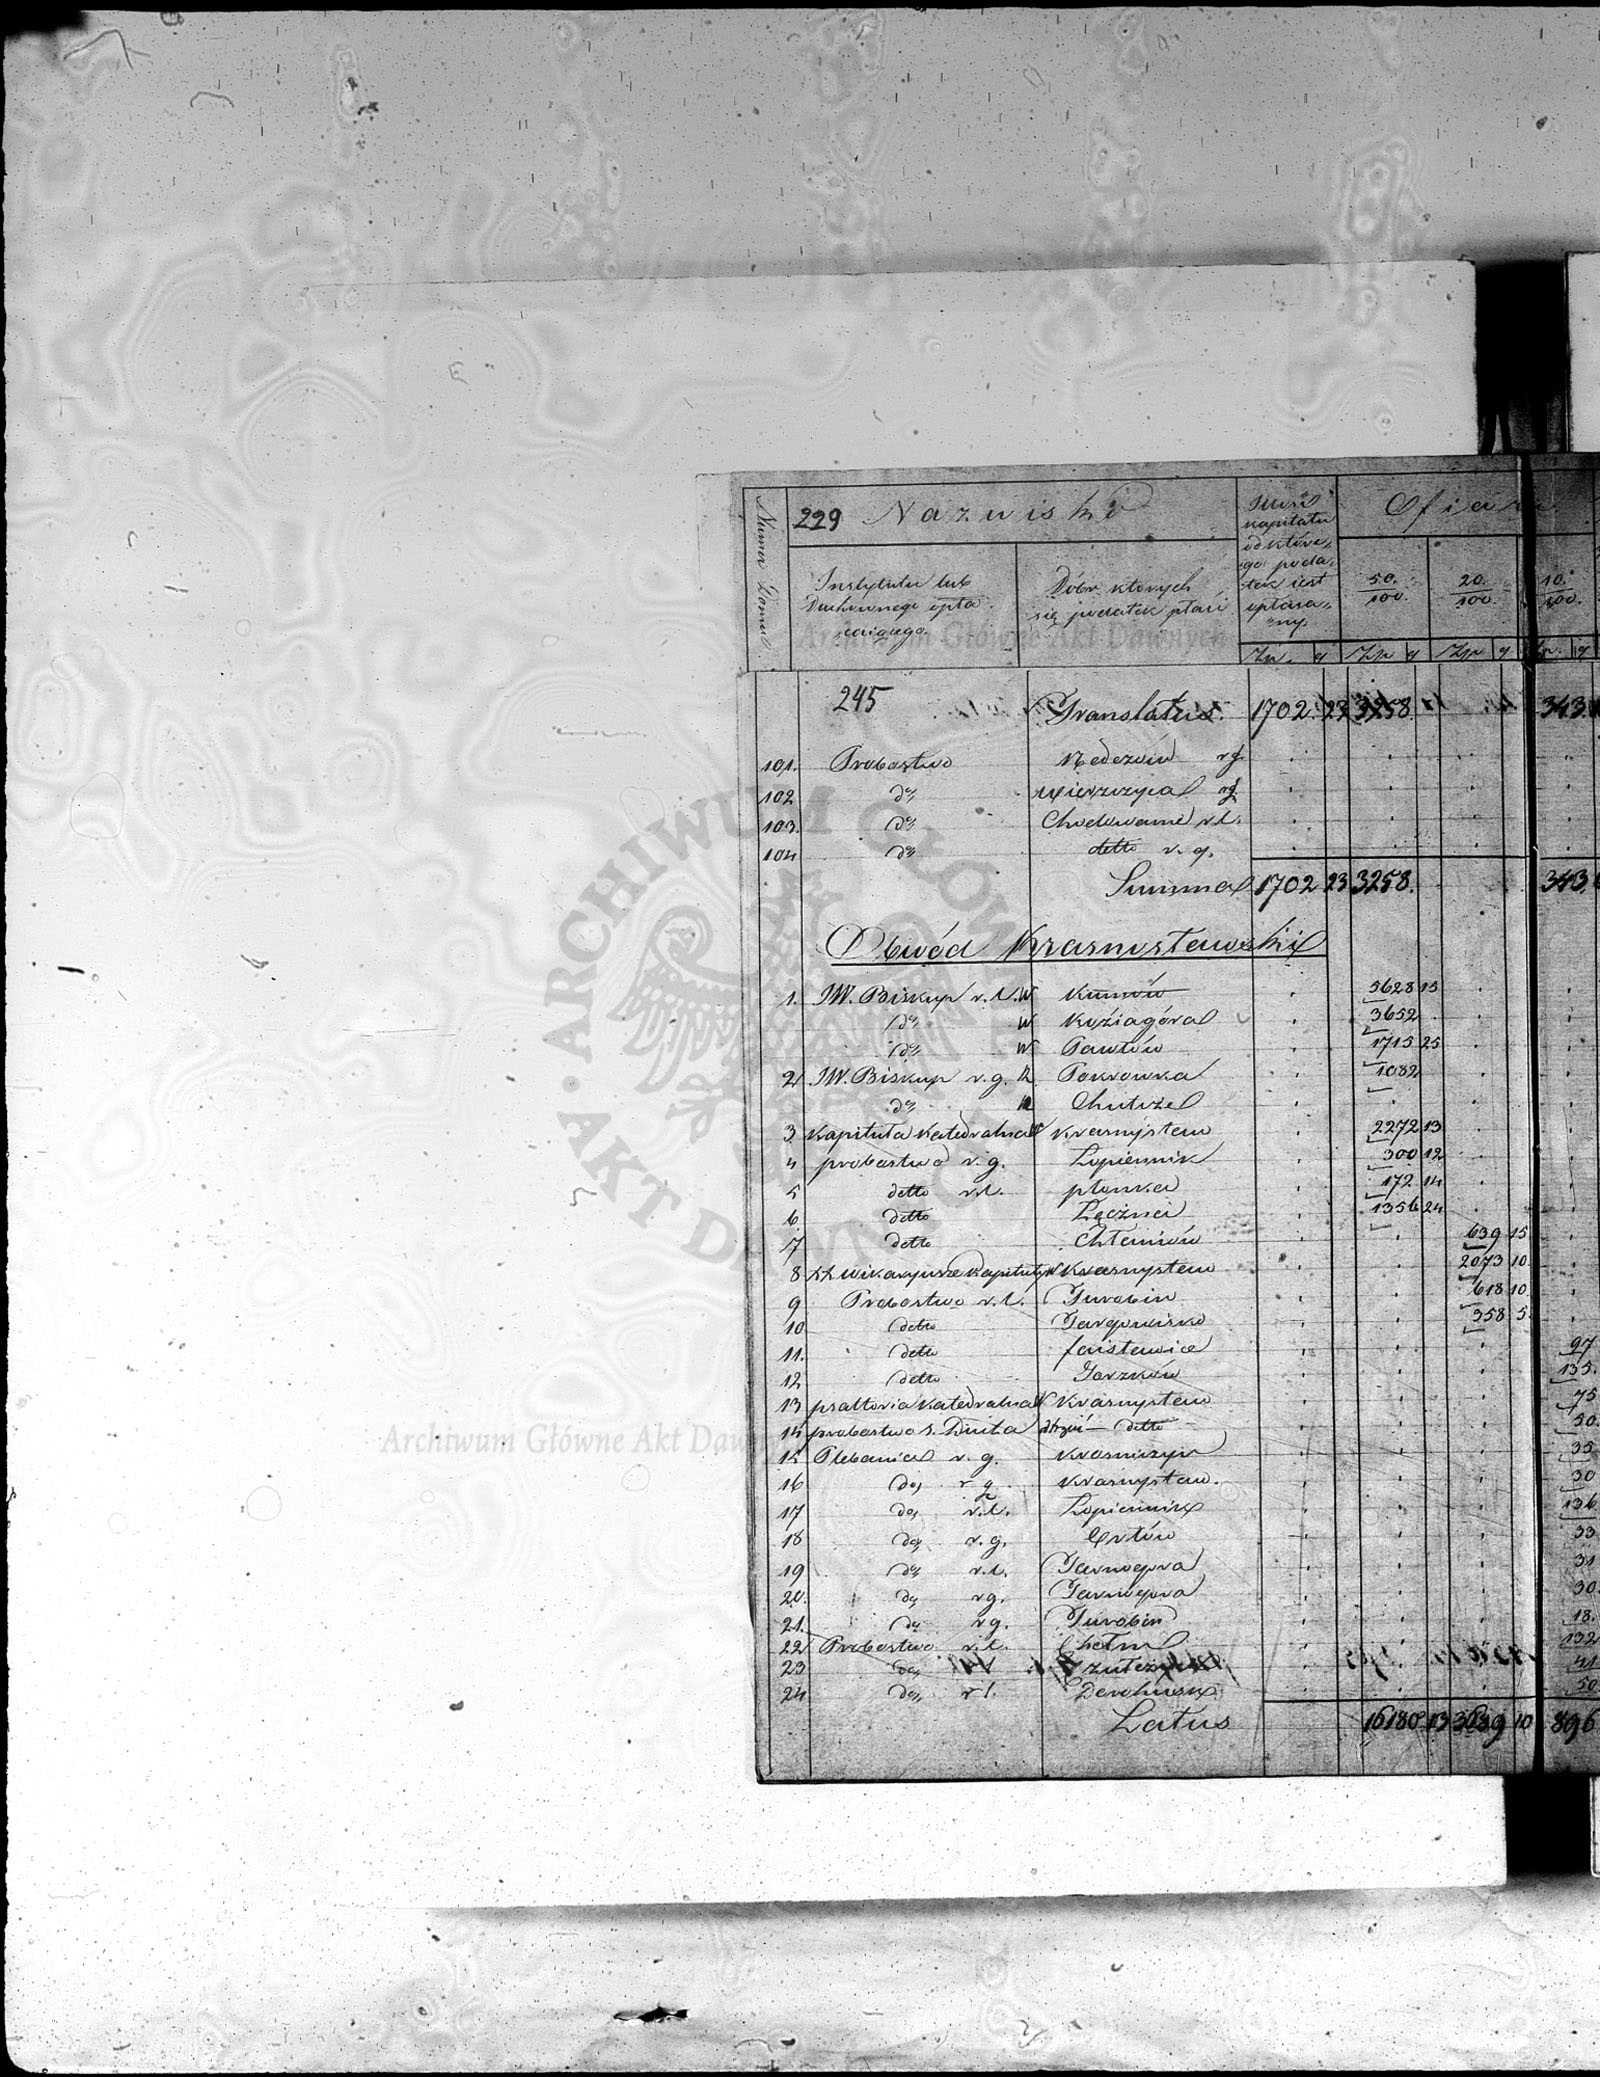 Numer Domu
229 Nazwisko
Ofiara
Instytutu lub
Duchownego opła
cającego
Dóbr których
się podatek płaci
Ilość
kapitału
od które-
go poda-
tek jest
opłaca-
ny
50/100 20/100 10/100
Zp. g Zp g Zp g Zp. g
245 Translatus 1702 23 3258 343
101. Probostwo Nedezów rg
102 do rg
103. do Chodowanie r.l.
104 do detto r.g.
Summa 1702 23 3258. 343
Obwód Krasnystawski
1. JW. Biskup r.l. W Kumów 5628 15
do W Koziagóra 3652
do W Pawłów 1715 25
2 JW. Biskup r.g. R Pokrowka 1082
do R Chutcze
3 Kapituła Katedralna Krasnystaw 2272 13
4 probostwo r.g. Łopiennik 300 12
5 detto r.l. płonka 172 14
6 detto Łęczna 1356 24
7 detto Chłaniów 639 15
8 XX wikaryusze Kapituły Krasnystaw 2073 10
9 Probostwo r.l. Turobin 618 10
10 detto Targowisko 358 5
11. detto 97
12 detto Gorzków 135.
13 psałtoria Katedralna W Krasnystaw 75
14 probostwo S. Ducha detto 50.
15 Plebania r.g. Krasniczyn 35
16 do r g Krasnystaw. 30
17 do r.l. Łopiennik 136
18 do r.g. Orłów 33
19 do r.l. Tarnogora 31
20. do rg. Tarnogora 30.
21. do rg. Turobin 18.
22 Probostwo r.l. Chełm 132
23 do 41
24 do r l. 50
Latus 16180 13 3689 10 896
Archiwum Główne Akt Dawnych
ARCHIWUM GŁÓWNE AKT DAWNYCH
Archiwum Główne Akt Dawnych